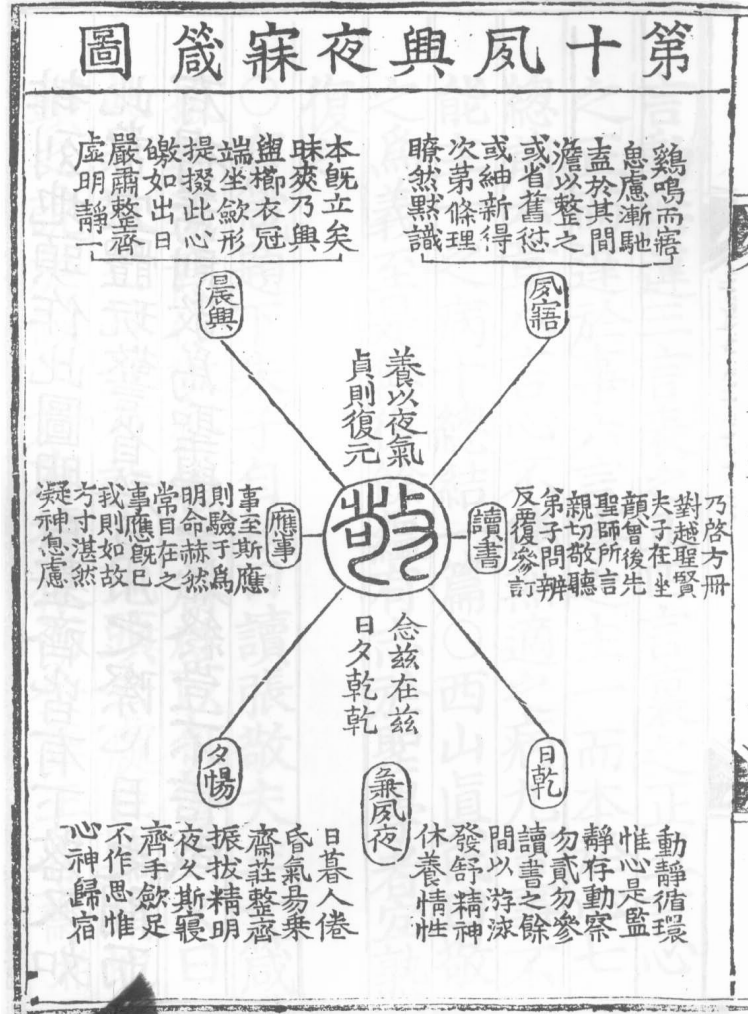 第十夙興夜寐箴圖
鷄鳴而寤
息慮漸馳
盍於其間
澹以整之
或省舊愆
或紬新得
次第條理
瞭然默識
夙寤
本旣立矣
昧爽乃興
盥櫛衣冠
端坐歛形
提掇此心
皦如出日
嚴肅整齊
虛明靜一
晨興
養以夜氣
貞則復元
敬
讀書
乃啓方冊
對越聖賢
夫子在坐
顔曾後先
聖師所言
親切敬聽
弟子問辨
反覆參訂
應事
事至斯應
則驗于爲
明命赫然
常目在之
事應旣已
我則如故
方寸湛然
凝神息慮
念茲在茲
日夕乾乾
兼夙夜
日乾
動靜循環
惟心是監
靜存動察
勿貳勿參
讀書之餘
間以游泳
發舒精神
休養情性
夕惕
日暮人倦
昏氣易乗
齋莊整齊
振拔精明
夜久斯寢
齊手歛足
不作思惟
心神歸宿